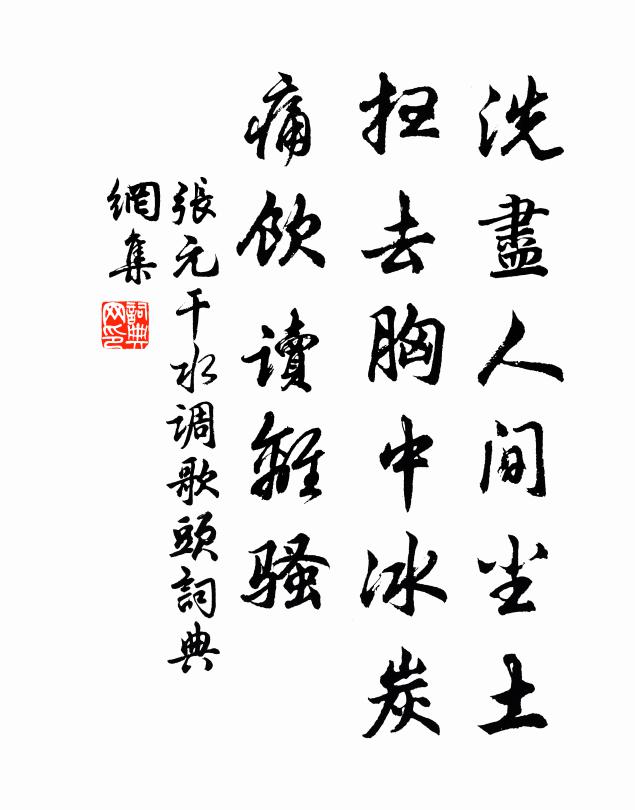 洗盡人间尘土
扫去胸中冰炭
痛飲讀離騷
張元干水调歌頭詞典
網集
詞典网印